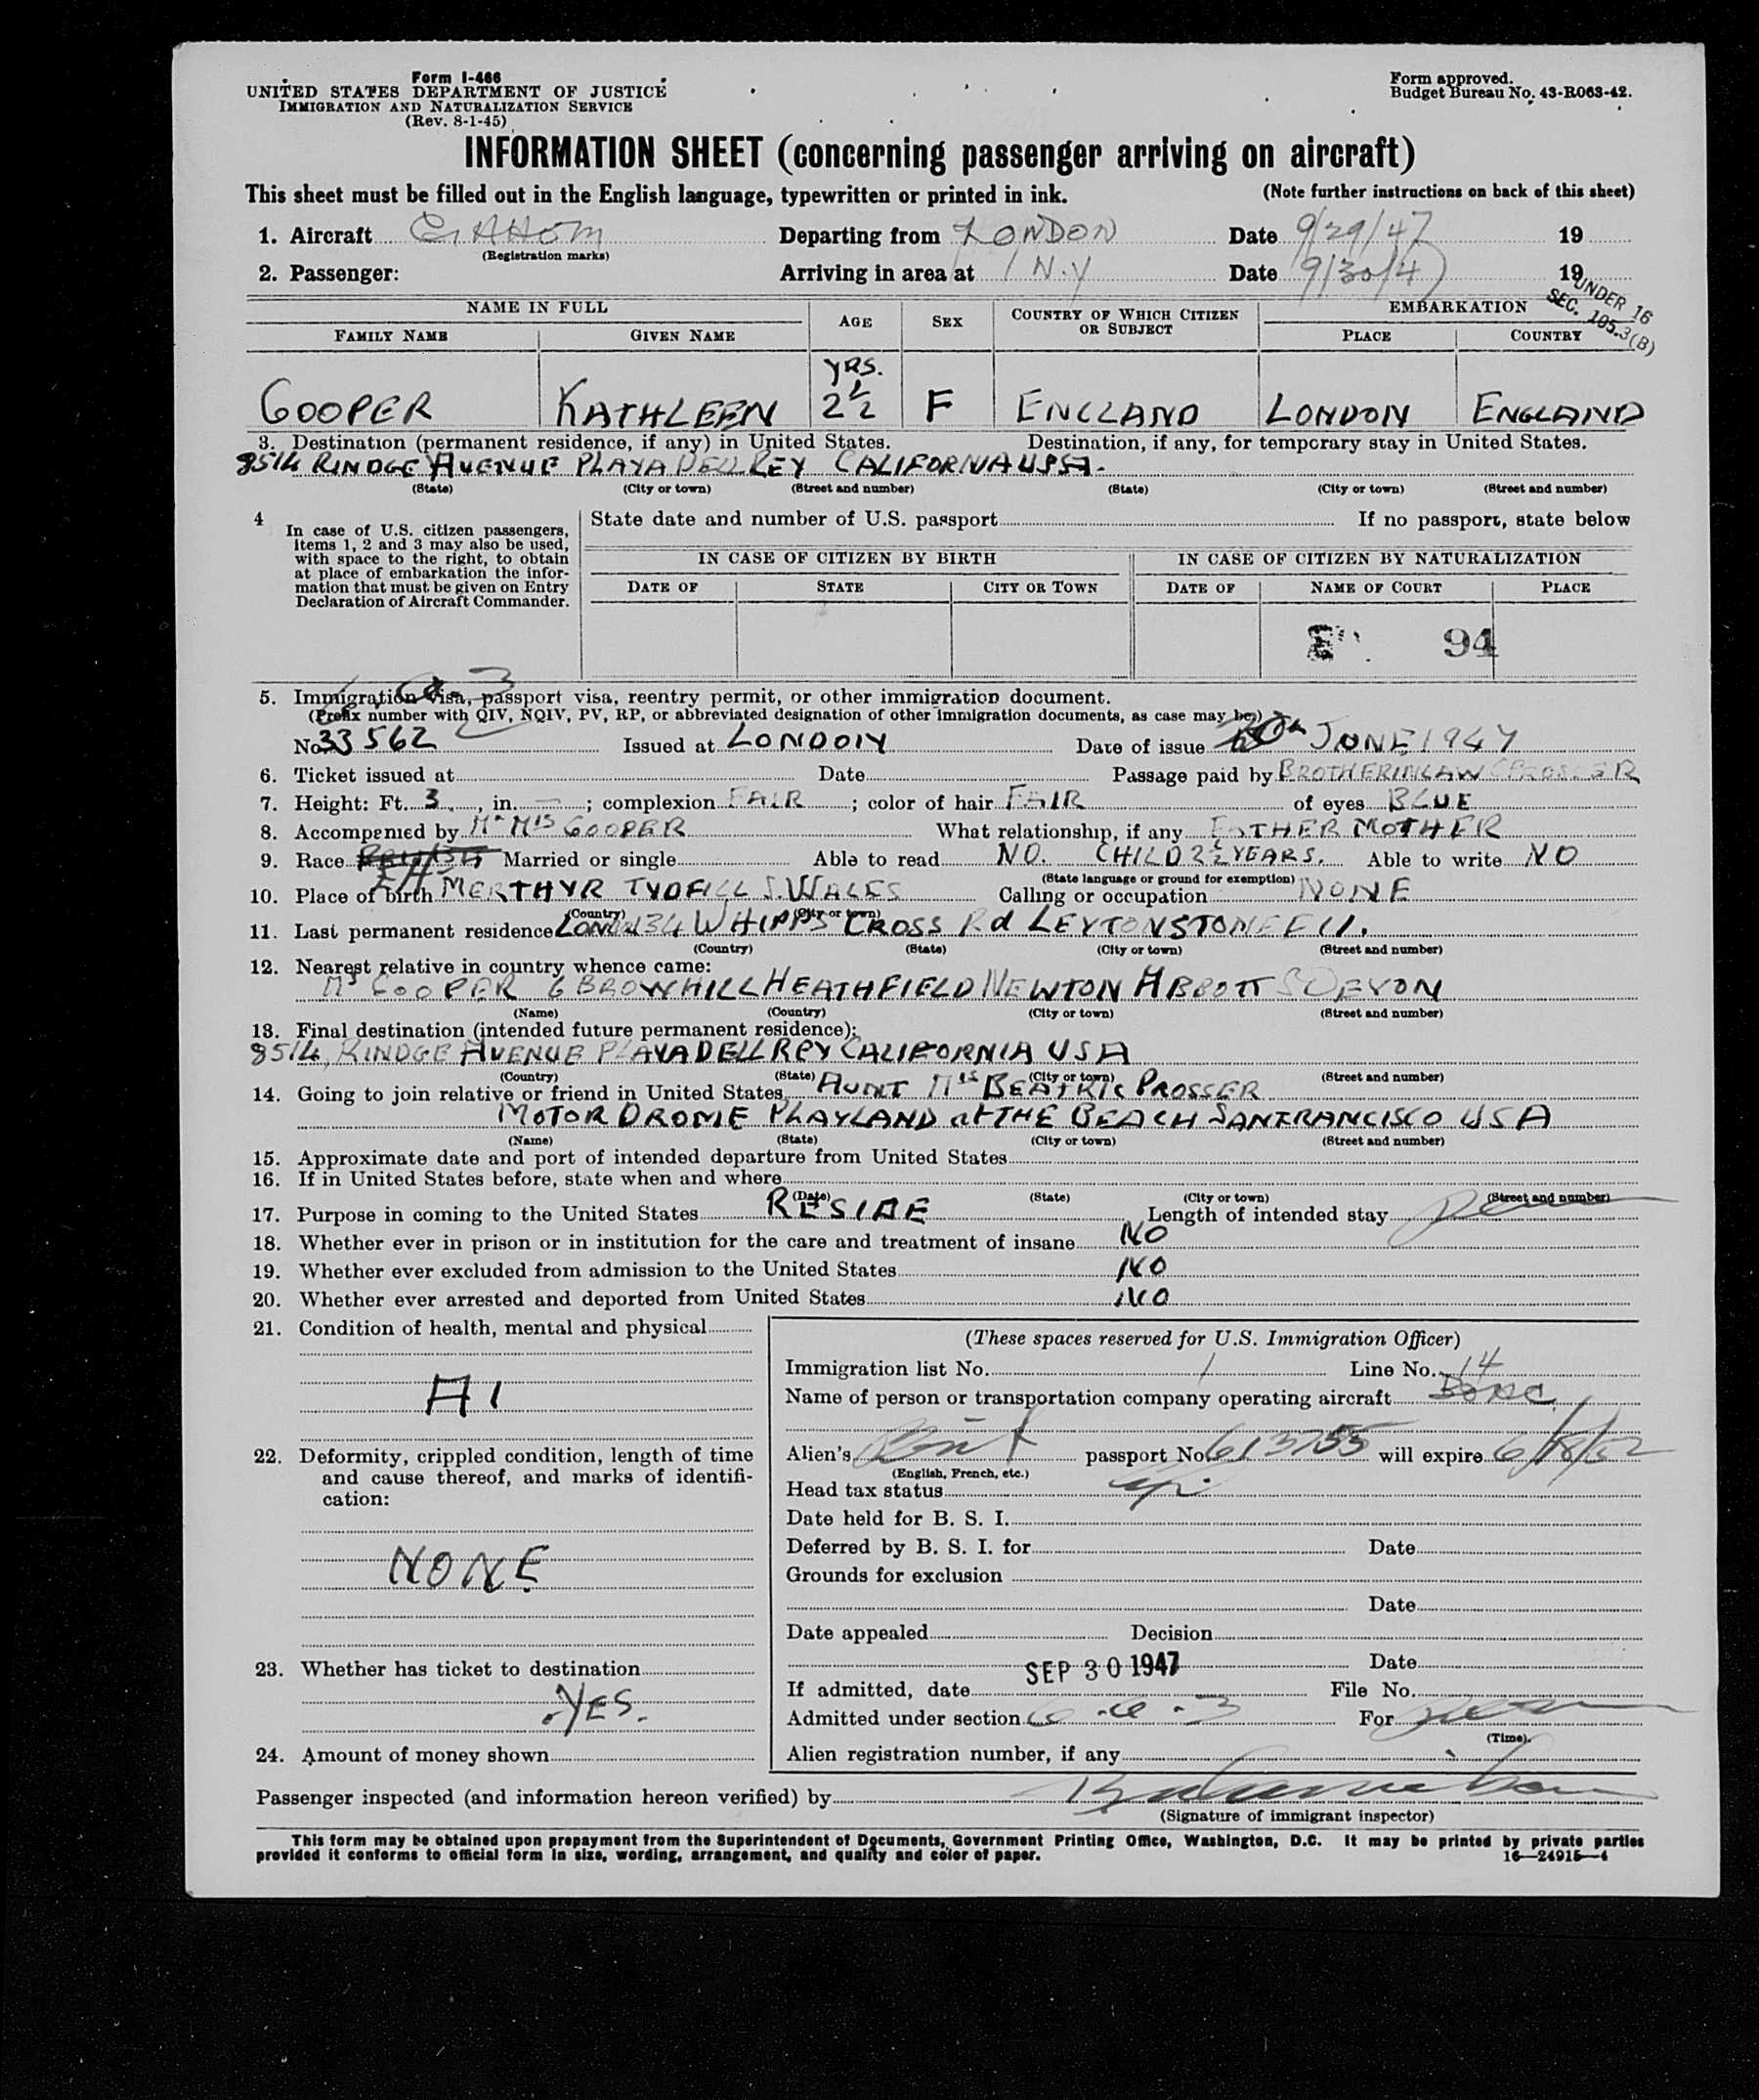 Form I-466
UNITED STATES DEPARTMENT OF JUSTICE
IMMIGRATION AND NATURALIZATION SERVICE
(Rev. 8-1-45)
Form approved.
Budget Bureau No. 43-R063-42.
INFORMATION SHEET (concerning passenger arriving on aircraft)
This sheet must be filled out in the English language, typewritten or printed in ink. (Note further instructions on back of this sheet)
1. Aircraft G AHOM Departing from LONDON Date 9/29/47 19
(Registration marks)
2. Passenger: Arriving in area at N.Y Date 9/30/47 19
UNDER 16
SEC. 105.3(B)
NAME IN FULL AGE SEX COUNTRY OF WHICH CITIZEN OR SUBJECT EMBARKATION
FAMILY NAME GIVEN NAME PLACE COUNTRY
YRS.
COOPER KATHLEEN 2½ F ENGLAND LONDON ENGLAND
3. Destination (permanent residence, if any) in United States. Destination, if any, for temporary stay in United States.
8514 RINDGE AVENUE PLAYA DELL REY CALIFORNIA USA.
(State) (City or town) (Street and number) (State) (City or town) (Street and number)
4 In case of U.S. citizen passengers, items 1, 2 and 3 may also be used, with space to the right, to obtain at place of embarkation the information that must be given on Entry Declaration of Aircraft Commander.
State date and number of U.S. passport If no passport, state below
IN CASE OF CITIZEN BY BIRTH IN CASE OF CITIZEN BY NATURALIZATION
DATE OF STATE CITY OR TOWN DATE OF NAME OF COURT PLACE
94
5. Immigration visa, passport visa, reentry permit, or other immigration document.
(Prefix number with QIV, NQIV, PV, RP, or abbreviated designation of other immigration documents, as case may be)
No. 33562 Issued at LONDON Date of issue JUNE 1947
6. Ticket issued at Date Passage paid by BROTHERINLAW PROSSER
7. Height: Ft. 3, in. — ; complexion FAIR ; color of hair FAIR of eyes BLUE
8. Accompenied by Mr Mrs COOPER What relationship, if any FATHER MOTHER
9. Race Married or single Able to read NO. CHILD 2½ YEARS. Able to write NO
(State language or ground for exemption)
10. Place of birth MERTHYR TYDFILL S. WALES Calling or occupation NONE
(Country) (City or town)
11. Last permanent residence LONDON 34 WHIPPS CROSS Rd LEYTONSTONE E 11.
(Country) (State) (City or town) (Street and number)
12. Nearest relative in country whence came:
Mrs COOPER 6 BROWHILL HEATHFIELD NEWTON ABBOTT S DEVON
(Name) (Country) (City or town) (Street and number)
13. Final destination (intended future permanent residence):
8514, RINDGE AVENUE PLAYA DELL REY CALIFORNIA USA
(Country) (State) (City or town) (Street and number)
14. Going to join relative or friend in United States AUNT Mrs BEATRIC PROSSER
MOTOR DROME PLAYLAND at THE BEACH SANFRANCISCO USA
(Name) (State) (City or town) (Street and number)
15. Approximate date and port of intended departure from United States
16. If in United States before, state when and where
(Date) (State) (City or town) (Street and number)
17. Purpose in coming to the United States RESIDE Length of intended stay
18. Whether ever in prison or in institution for the care and treatment of insane NO
19. Whether ever excluded from admission to the United States NO
20. Whether ever arrested and deported from United States NO
21. Condition of health, mental and physical
A1
22. Deformity, crippled condition, length of time and cause thereof, and marks of identification:
NONE
23. Whether has ticket to destination
YES.
24. Amount of money shown
(These spaces reserved for U.S. Immigration Officer)
Immigration list No. 1 Line No. 14
Name of person or transportation company operating aircraft BOAC
Alien's passport No. 613755 will expire 6/18/52
(English, French, etc.)
Head tax status
Date held for B. S. I.
Deferred by B. S. I. for Date
Grounds for exclusion
Date
Date appealed Decision
Date
If admitted, date SEP 30 1947 File No.
Admitted under section 6-a-3 For
(Time)
Alien registration number, if any
Passenger inspected (and information hereon verified) by
(Signature of immigrant inspector)
This form may be obtained upon prepayment from the Superintendent of Documents, Government Printing Office, Washington, D.C. It may be printed by private parties
provided it conforms to official form in size, wording, arrangement, and quality and color of paper. 16—24915-4